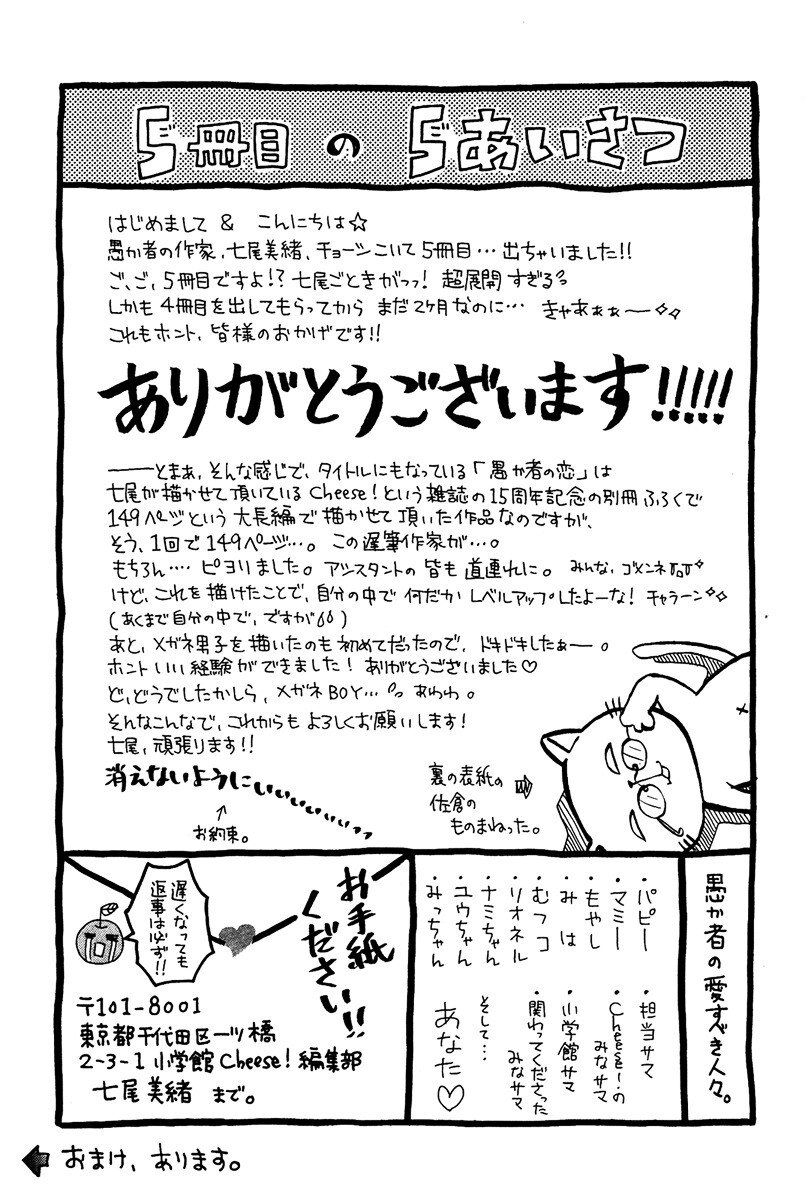 5冊目の5あいさつ
はじめまして & こんにちは☆
愚か者の作家、七尾美緒、チョーシこいて5冊目…出ちゃいました!!
ご、ご、5冊目ですよ!?七尾ごときがっっ!超展開すぎる
しかも4冊目を出してもらってからまだ2ヶ月なのに…きゃあぁぁー
これもホント、皆様のおかげです!!
ありがとうございます!!!!!
――とまぁ、そんな感じで、タイトルにもなっている「愚か者の恋」は
七尾が描かせて頂いているCheese!という雑誌の15周年記念の別冊ふろくで
149ページという大長編で描かせて頂いた作品なのですが、
そう、1回で149ページ…。この遅筆作家が…。
もちろん…・ピヨりました。アシスタントの皆も道連れに。みんな、ゴメンネ
けど、これを描けたことで、自分の中で何だかレベルアップしたよーな!チャラーン
(あくまで自分の中で、ですが)
あと、メガネ男子を描いたのも初めてだったので、ドキドキしたぁー。
ホントいい経験ができました!ありがとうございました♡
ど、どうでしたかしら、メガネBOY…あわわ。
そんなこんなで、これからもよろしくお願いします!
七尾、頑張ります!!
消えないようにぃぃぃぃぃぃぃ…
↑
お約束。
裏の表紙の⇨
佐倉の
ものまねった。
愚か者の愛すべき人々。
・パピー
・マミー
・もやし
・みは
・むつコ
・リオネル
・ナミちゃん
・ユウちゃん
・みっちゃん
・担当サマ
・Cheese!の
みなサマ
・小学館サマ
・関わってくださった
みなサマ
そして…
あなた♡
お手紙
ください!!
遅くなっても
返事は必ず!!
〒101-8001
東京都千代田区一ツ橋
2-3-1小学館Cheese!編集部
七尾美緒 まで。
←おまけ、あります。